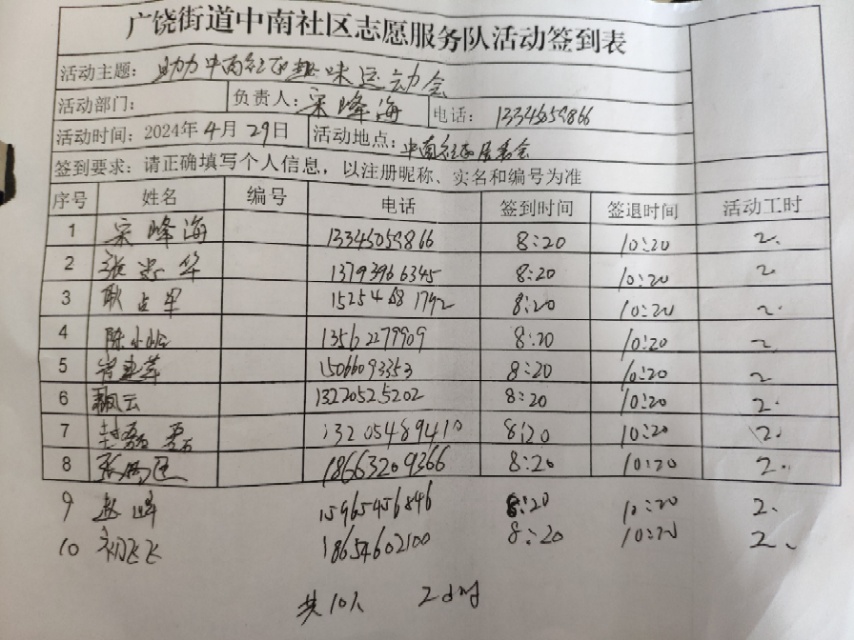 广饶街道中南社区志愿服务队活动签到表
活动主题：助力中南社区趣味运动会
活动部门： 负责人：宋峰海 电话：13345059866
活动时间：2024年4月29日 活动地点：中南社区居委会
签到要求：请正确填写个人信息，以注册昵称、实名和编号为准
序号 姓名 编号 电话 签到时间 签退时间 活动工时
1 宋峰海 13345059866 8:20 10:20 2.
2 张忠华 13793966345 8:20 10:20 2
3 耿占军 15254681792 8:20 10:20 2.
4 陈小岭 13562279909 8:20 10:20 2
5 15066093353 8:20 10:20 2
6 飘云 13220525202 8:20 10:20 2.
7 13205489410 8:20 10:20 2.
8 18663209366 8:20 10:20 2.
9 赵峰 15965456846 8:20 10:20 2.
10 初飞飞 18654602100 8:20 10:20 2.
共10人